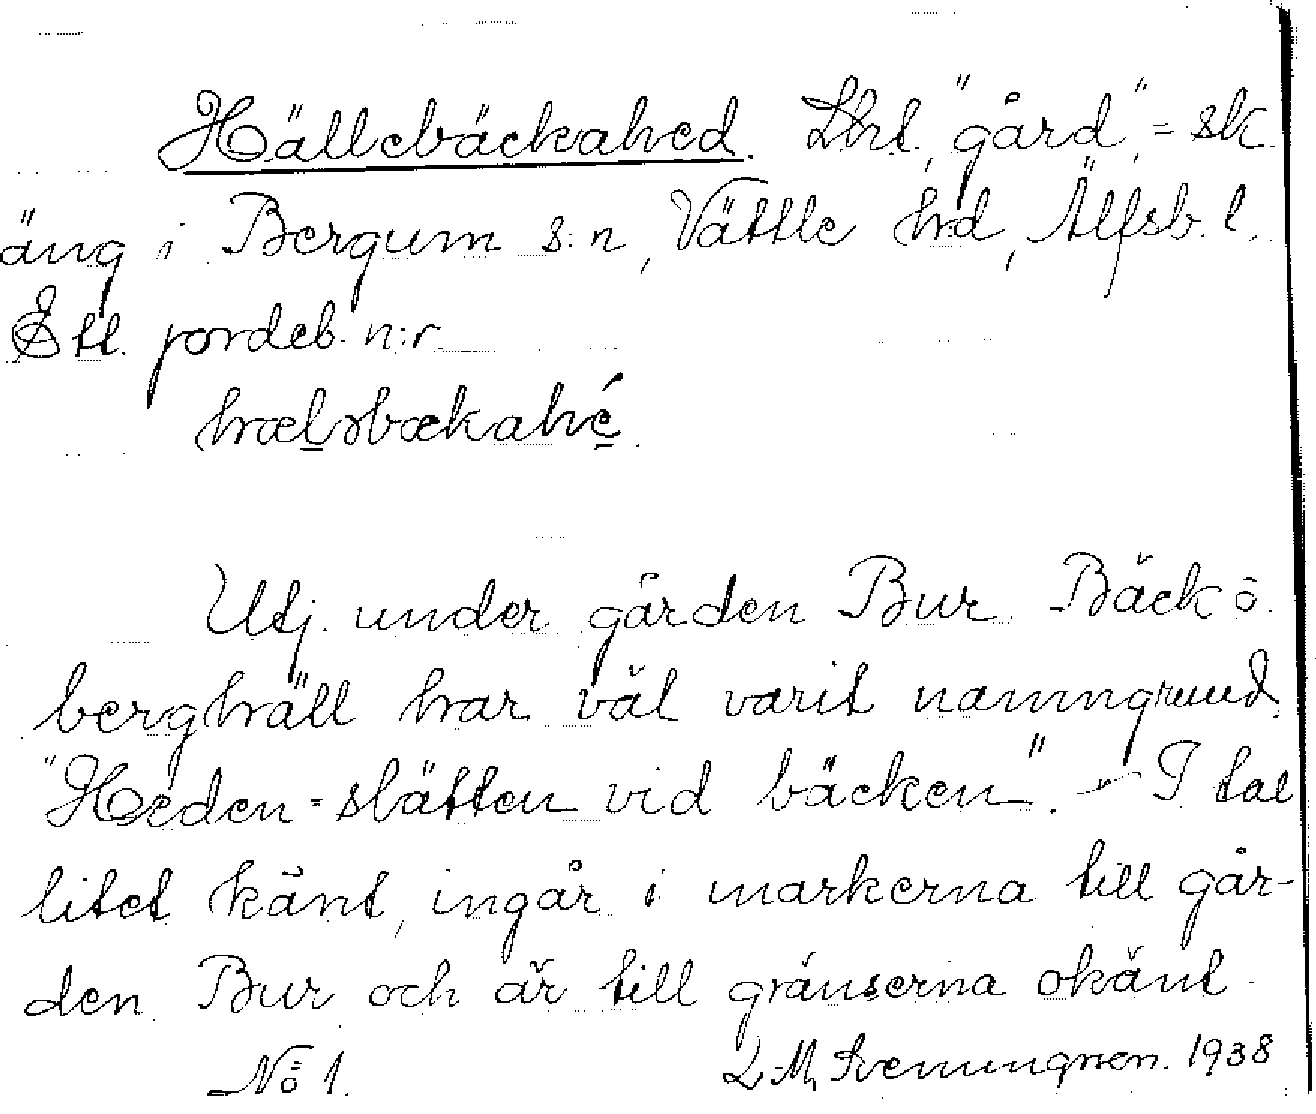 Hällebäckahed. Lht. "gård", = sk.
äng i Bergum s:n, Vättle hd, Älfsb. l.
Ett. jordeb. n:r
hælɘbækahé.
Utj. under gården Bur. Bäck o.
berghäll har väl varit namngrund.
"Heden - slätten vid bäcken". - I tal
litet känt, ingår i markerna till går-
den Bur och är till gränserna okänt.
No 1. 1938